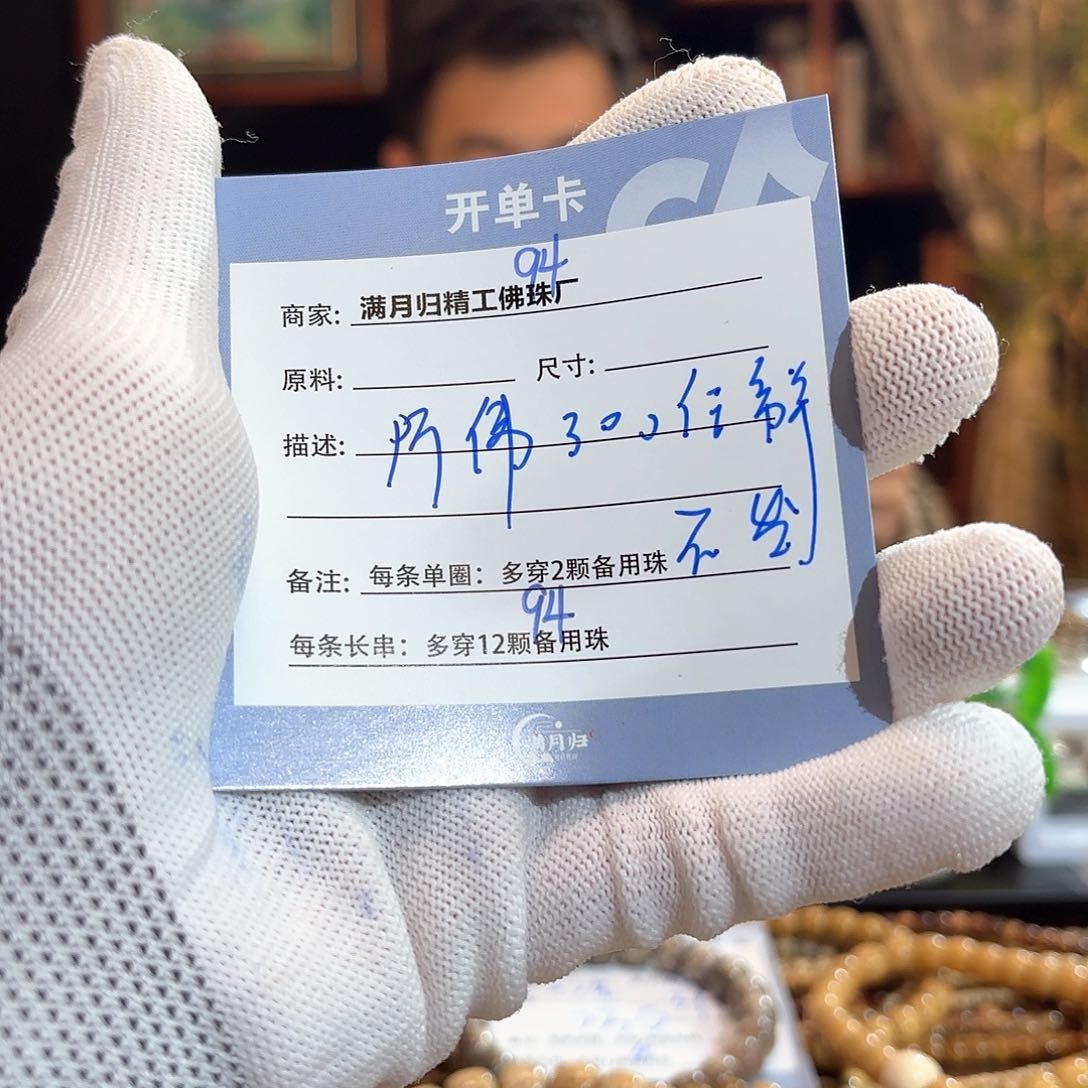 开单卡
94
商家: 满月归精工佛珠厂
原料: 尺寸:
描述: 佛300倍解
不到
备注: 每条单圈：多穿2颗备用珠
94
每条长串：多穿12颗备用珠
满月归